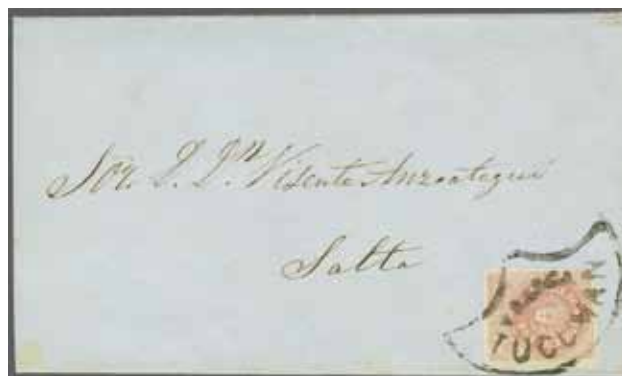 Sor. D. Dn. Visente Anzoategui
Salta
FRANCA
TUCUMAN